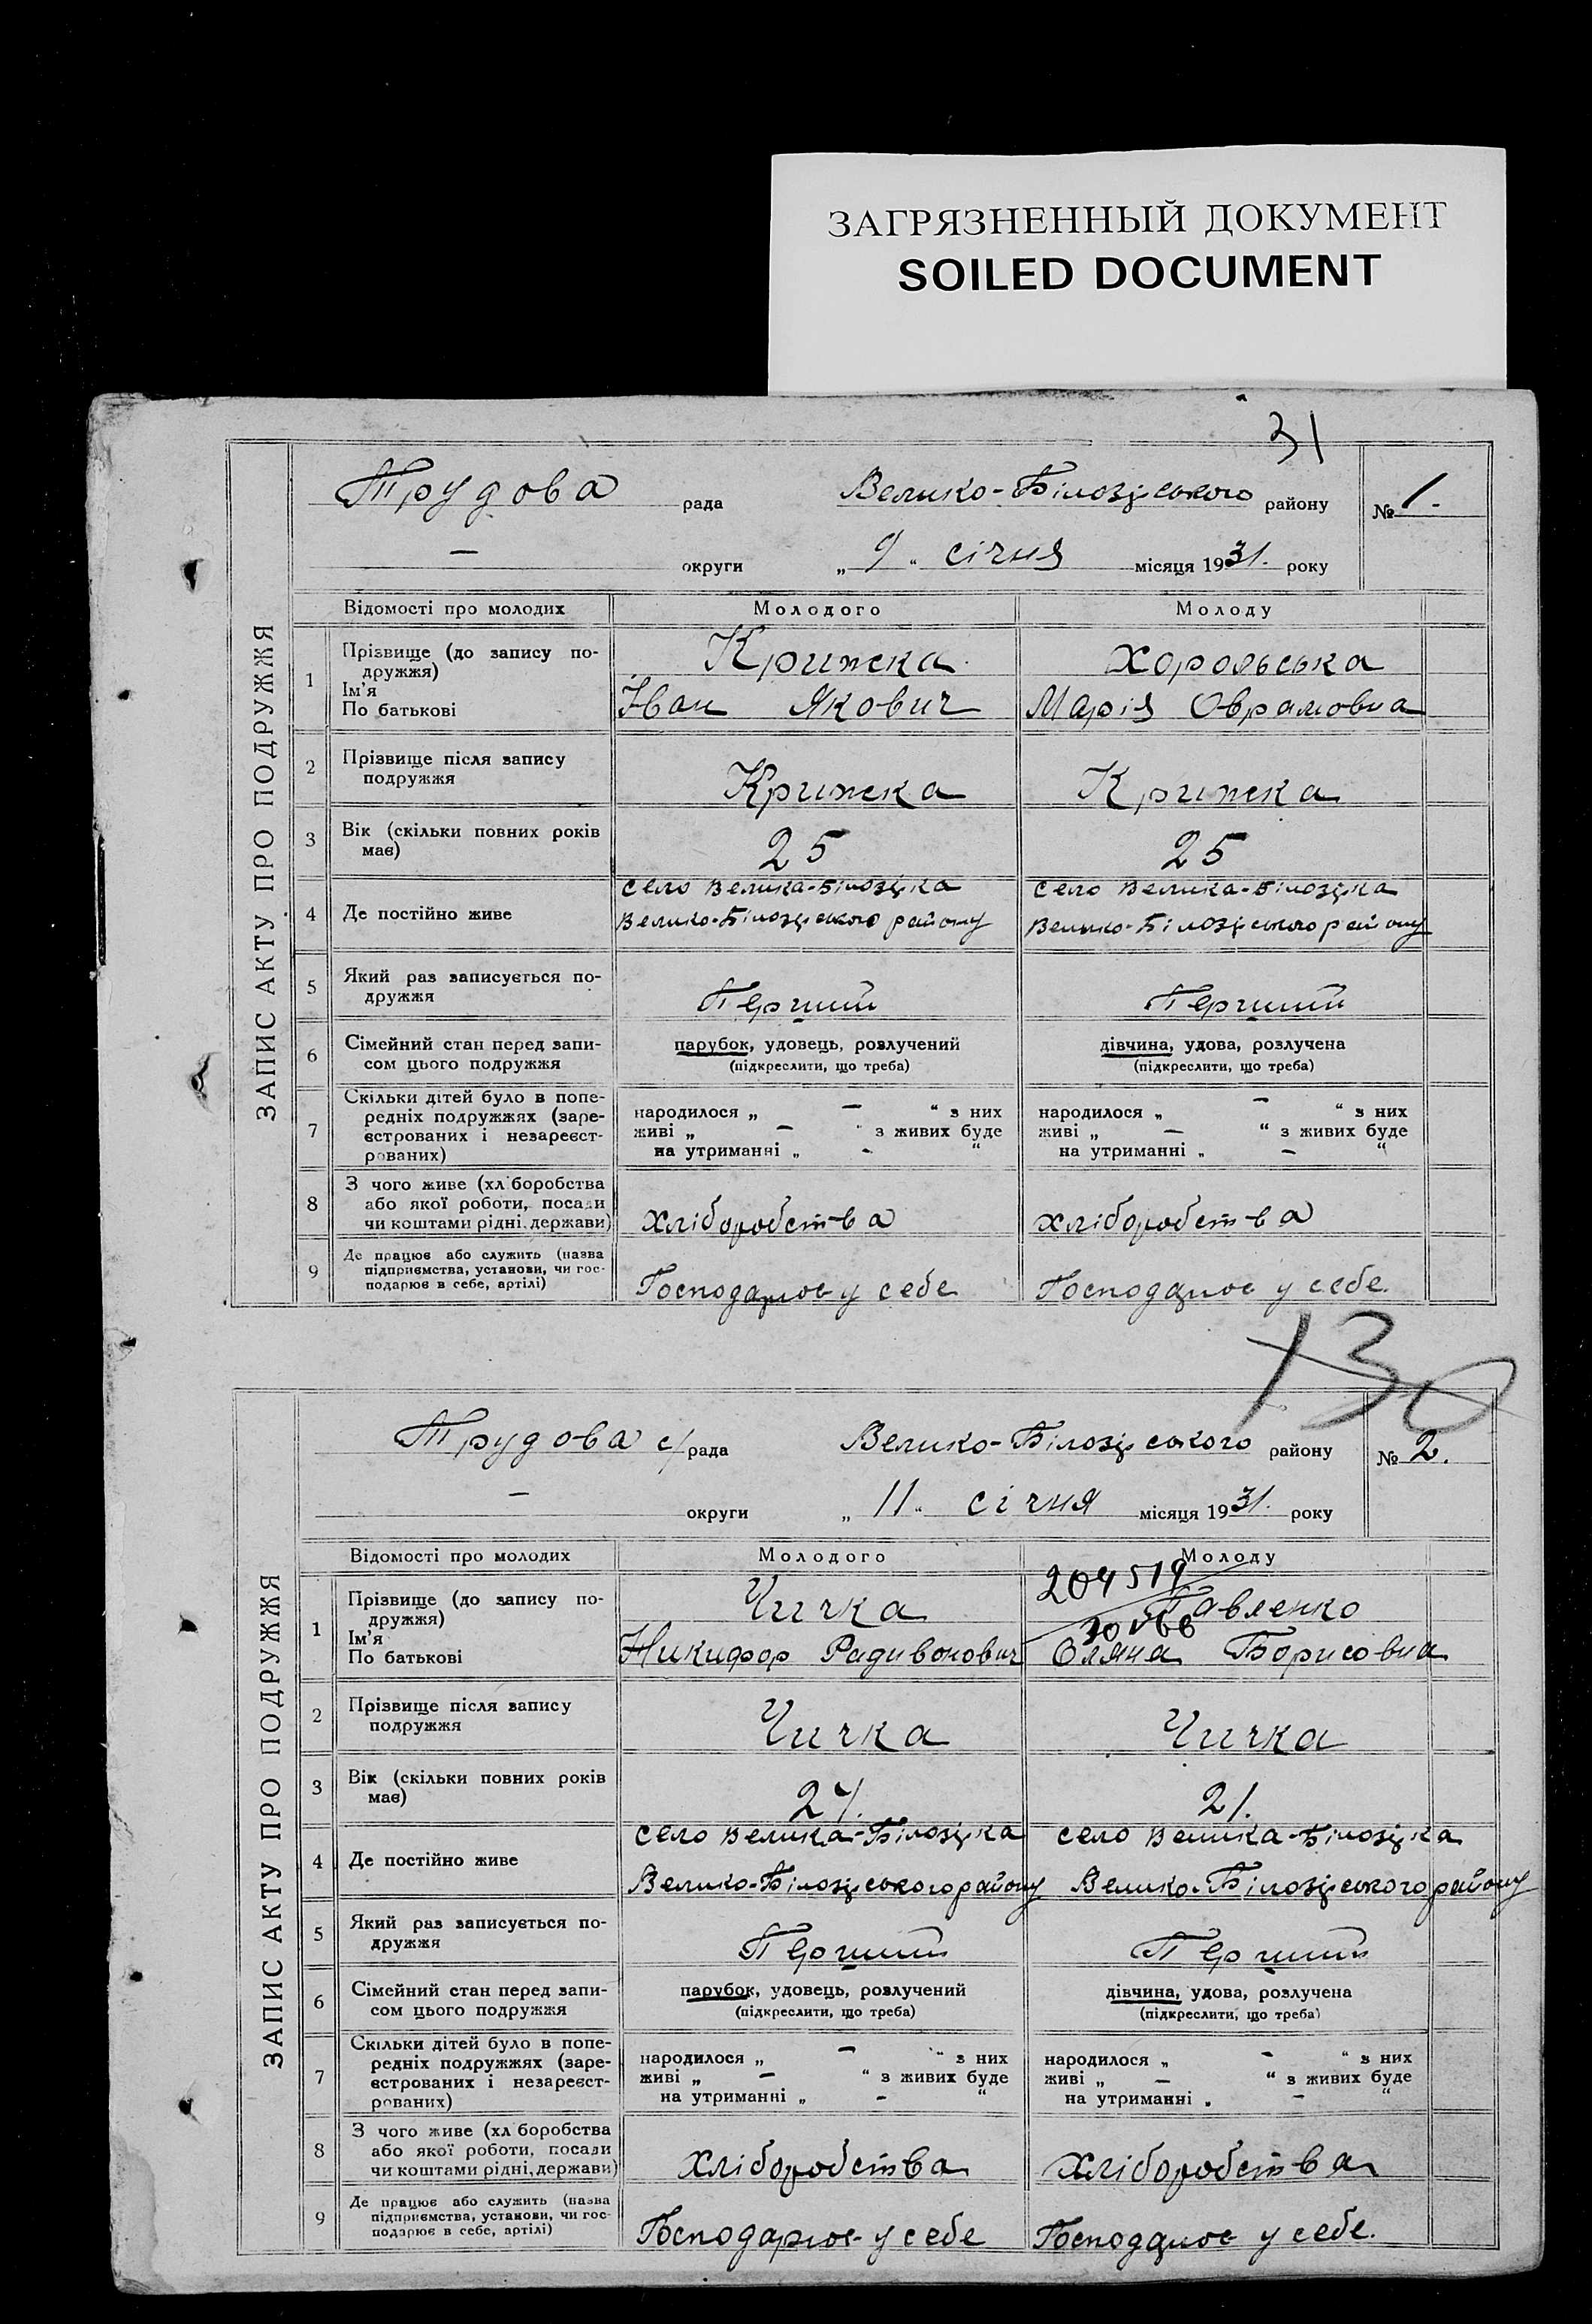 ЗАГРЯЗНЕННЫЙ ДОКУМЕНТ
SOILED DOCUMENT
31
ЗАПИС АКТУ ПРО ПОДРУЖЖЯ
Трудова рада Велико-Білозірського району № 1.
— округи „ 9 “ січня місяця 1931. року
Відомості про молодих Молодого Молоду
1 Прізвище (до запису по-
дружжя)
Ім'я
По батькові
Крижска Хорольська
Іван Якович Марія Оврамовна
2 Прізвище після запису
подружжя
Крижска Крижска
3 Вік (скільки повних років
має)
25 25
4 Де постійно живе
село Велика-Білозірка село Велика-Білозірка
Велико-Білозірського району Велико-Білозірського району
5 Який раз записується по-
дружжя
Перший Перший
6 Сімейний стан перед запи-
сом цього подружжя
парубок, удовець, розлучений дівчина, удова, розлучена
(підкреслити, що треба) (підкреслити, що треба)
7 Скільки дітей було в попе-
редніх подружжях (заре-
єстрованих і незареєст-
рованих)
народилося „ — “ з них народилося „ — “ з них
живі „ — “ з живих буде живі „ — “ з живих буде
на утриманні „ - “ на утриманні „ — “
8 З чого живе (хл боробства
або якої роботи, посади
чи коштами рідні, держави)
хліборобства хліборобства
9 Де працює або служить (назва
підприємства, установи, чи гос-
подарює в себе, артілі)
Господарює у себе Господарює у себе.
130
ЗАПИС АКТУ ПРО ПОДРУЖЖЯ
Трудова с/рада Велико-Білозірського району № 2.
— округи „ 11 “ січня місяця 1931. року
Відомості про молодих Молодого Молоду
1 Прізвище (до запису по-
дружжя)
Ім'я
По батькові
204519
Чичка Павленко
Никифор Радивонович Оляна Борисовна
2 Прізвище після запису
подружжя
Чичка Чичка
3 Вік (скільки повних років
має)
21.
4 Де постійно живе
село Велика-Білозірка село Велика-Білозірка
Велико-Білозірського району Велико-Білозірського району
5 Який раз записується по-
дружжя
Перший Перший
6 Сімейний стан перед запи-
сом цього подружжя
парубок, удовець, розлучений дівчина, удова, розлучена
(підкреслити, що треба) (підкреслити, що треба)
7 Скільки дітей було в попе-
редніх подружжях (заре-
єстрованих і незареєст-
рованих)
народилося „ — “ з них народилося „ - “ з них
живі „ — “ з живих буде живі „ — “ з живих буде
на утриманні „ - “ на утриманні „ — “
8 З чого живе (хл боробства
або якої роботи, посади
чи коштами рідні, держави)
хліборобства хліборобства
9 Де працює або служить (назва
підприємства, установи, чи гос-
подарює в себе, артілі)
Господарює у себе Господарює у себе.